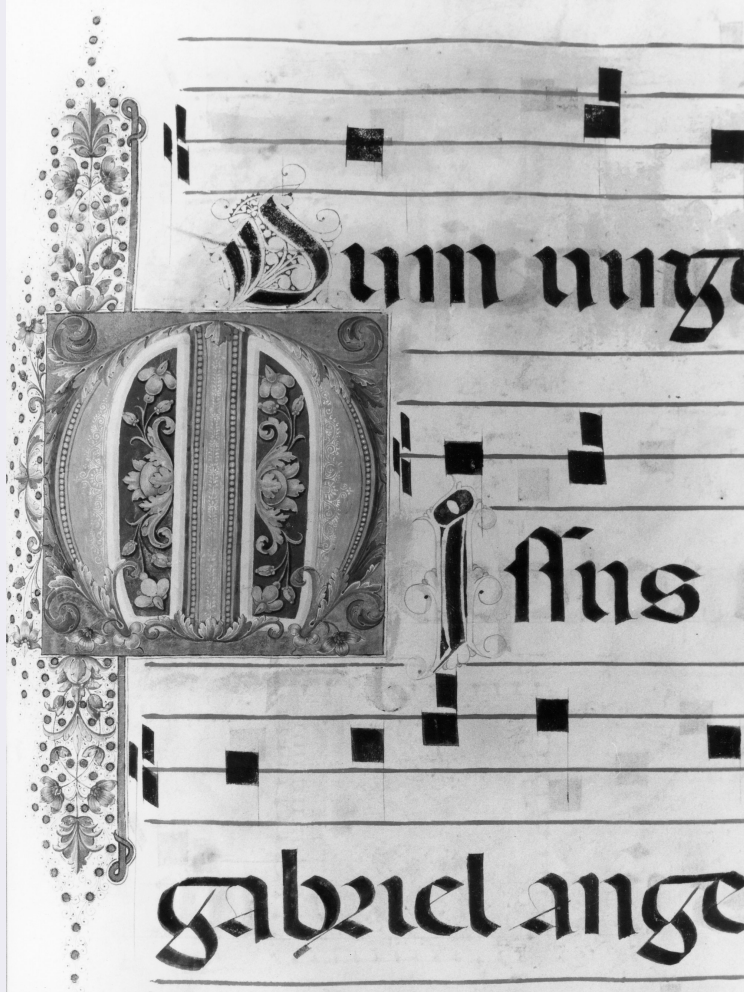 Dum
MIssus
gabriel ange